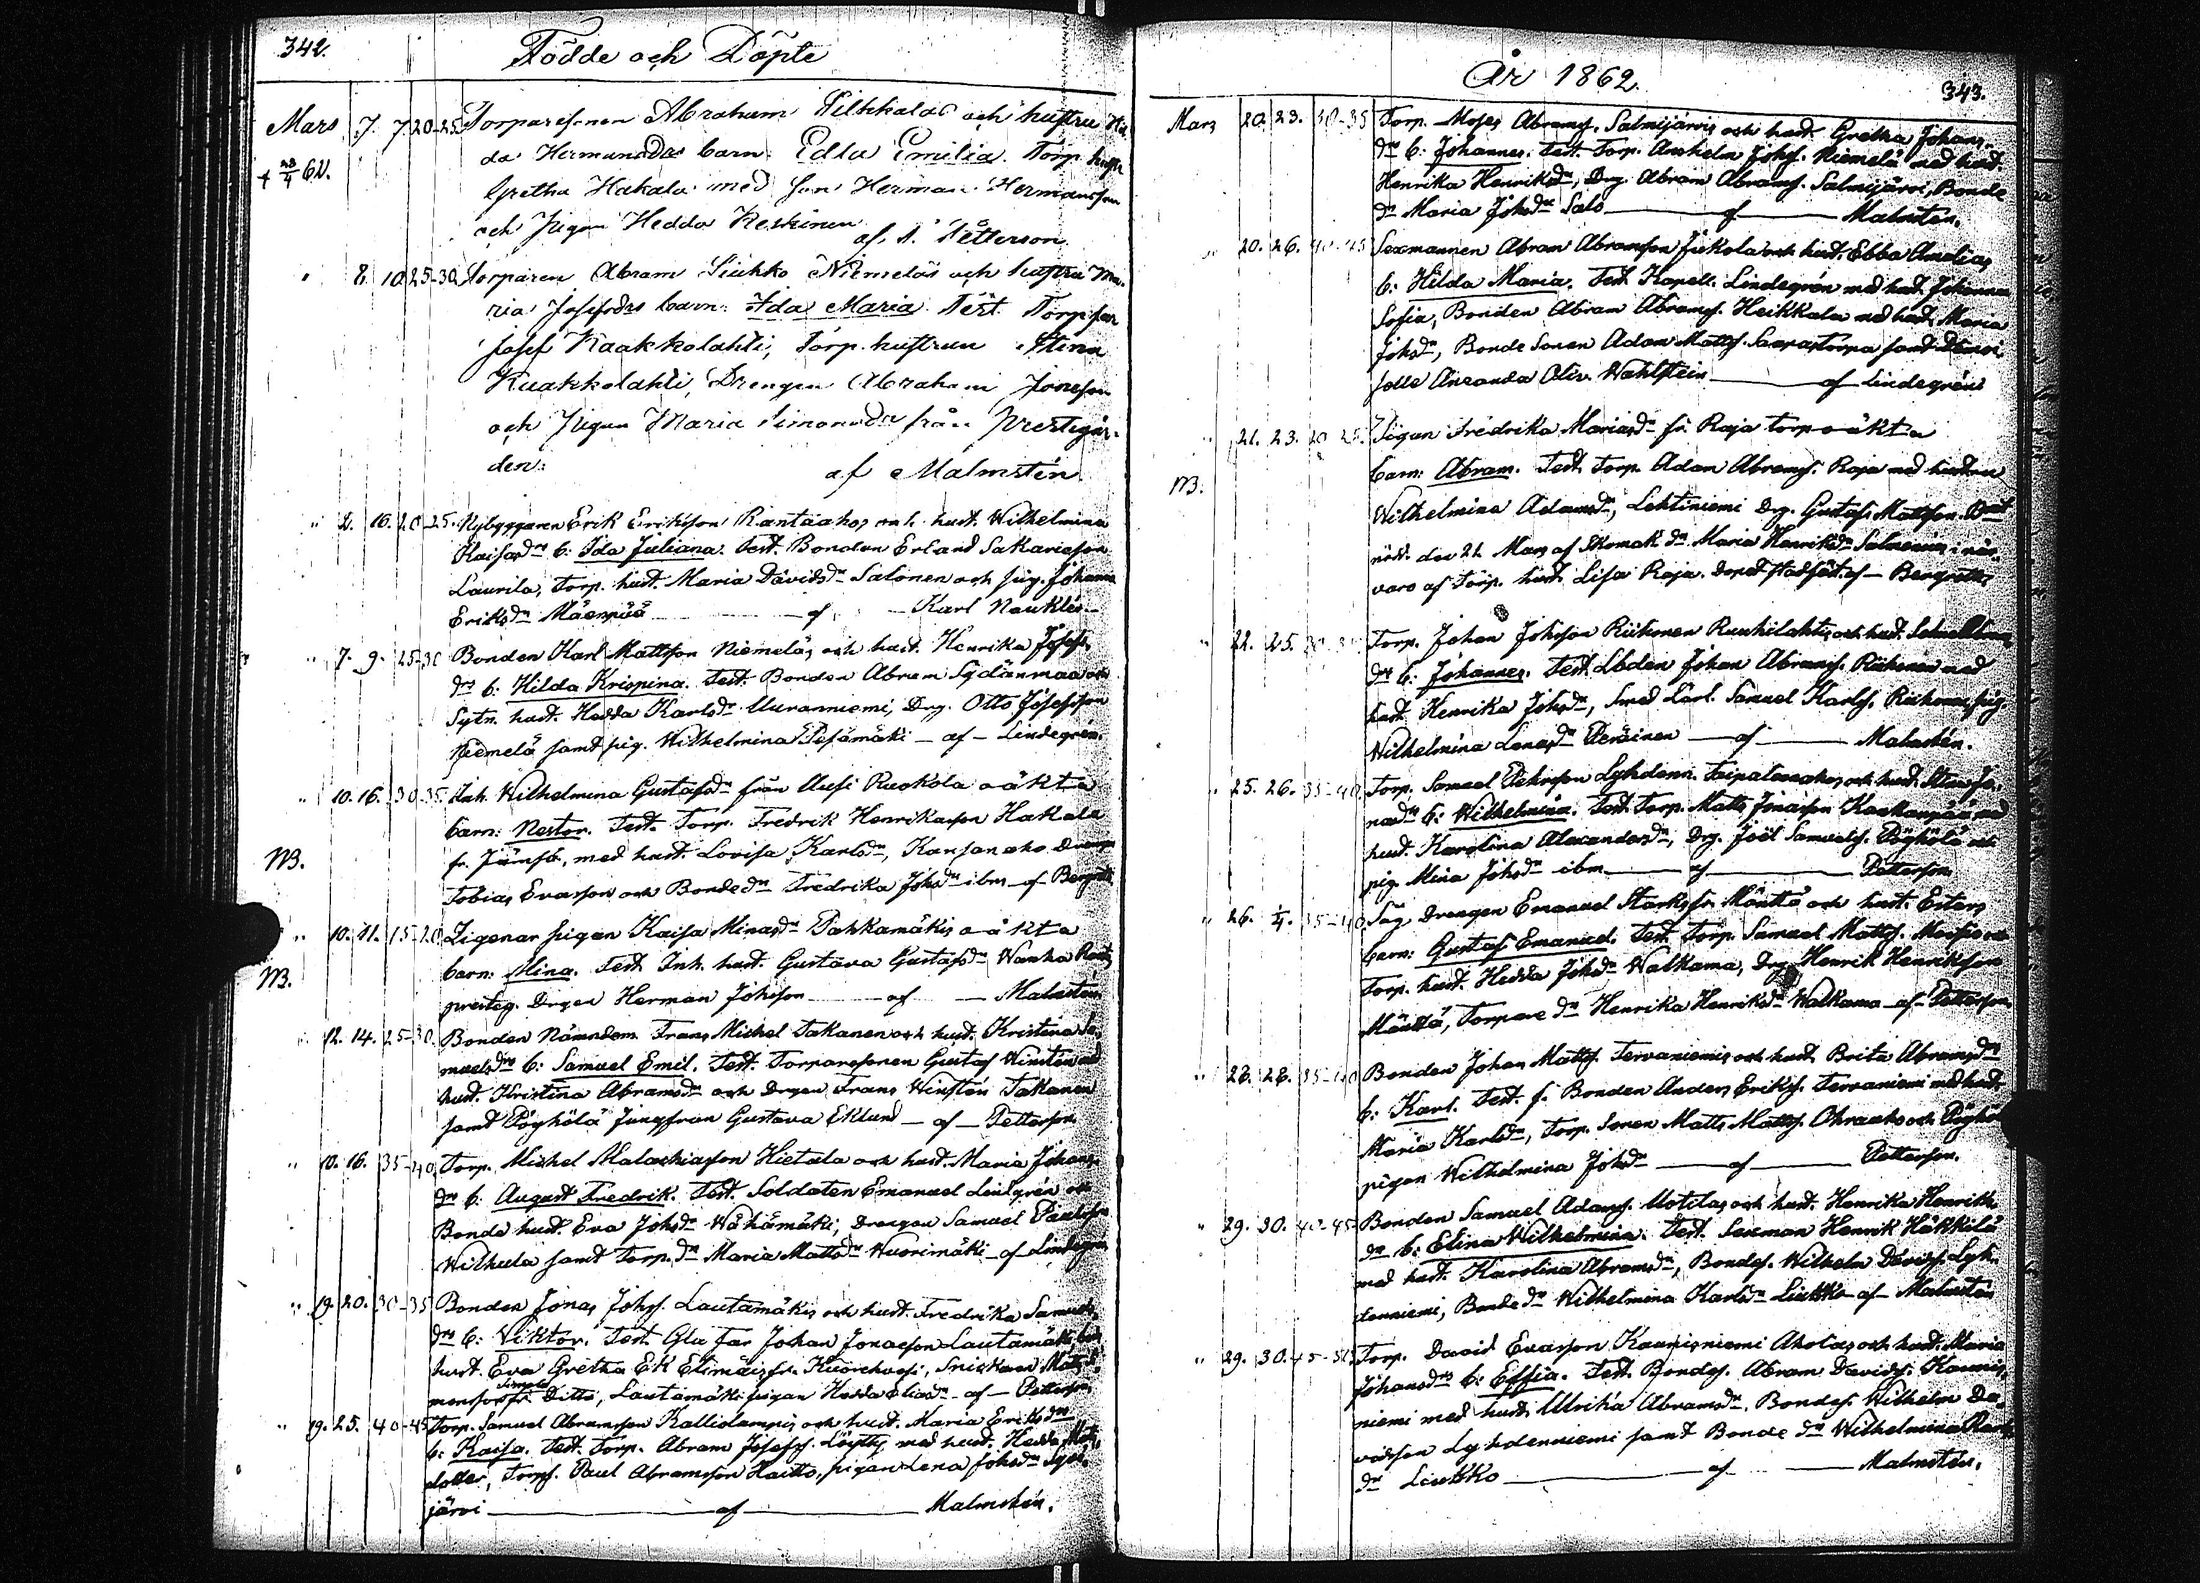 342.
Födde och Döpte
Mars 7. 7 20-25 Torparesonen Abraham Pilkkalas och hustru Hed-
da Hermansdrs barn: Edla Emilia. Torp. hustr.
Gretha Hakala med son Herman Hermansson
och Pigan Hedda Keskinen
af A. Petterson.
" 8. 10 25-30 Torparen Abram Liukko Niemeläs och hustru Ma-
ria Josefsdrs barn: Ida Maria. Test. Torp.
Josef Kaakkolahti, Torp. hustrun Stina
Kuakkolahti, Drengen Abraham Jonesson
och Pigan Maria Simonsdr från Prestegår-
den: af Malmstén
" 2. 16. 20-25. Nybyggaren Erik Eriksson Rantaahos och hust. Wilhelmina
Kaisasdrs b: Ida Juliana. Test. Bonden Erland Sakariasson
Laurila, Torp. hust. Maria Davidsdr Salonen och pig. Johanna
Eriksdr Mäenpää af Karl Nauklér
" 7. 9. 25-30 Bonden Karl Mattsson Niemeläs och hust. Henrika Josefs
drs b: Hilda Krispina. Test. Bonden Abram Sydänmaa och
Sytn. hust. Hedda Karlsdr Uuranniemi, Drg. Otto Josefsson
Niemelä samt pig. Wilhelmina Pesämäki af Lindegrén.
" 10. 16. 30-35 Inh. Wilhelmina Gustafsdr från Ruokola oäkta
barn: Nestor. Test. Torp. Fredrik Henriksson Hakala
fr. Jämsä, med hust. Lovisa Karlsdr, Kansanaho Drengen
Tobias Evasson och Bondedr Fredrika Johsdr ibm af Bergroth
NB.
" 10. 11. 15-20 Zigenar pigan Kaisa Minasdr Pahkamäkis oäkta
barn: Mina. Test. Inh. hust. Gustava Gustafsdr Wanha
presteg. Drgen Herman Johsson af Malmstén
NB.
" 12. 14. 25-30. Bonden Nämndem. Frans Michel Takanen och hust. Kristina Sa-
muelsdrs b: Samuel Emil. Test. Torparesonen Gustaf Winstén med
hust. Kristina Abramsdr och Drgen Frans Winstén Takanen
samt Pöyhölä Jungfrun Gustava Eklund af Petterson
" 10. 16. 35-40 Torp. Michel Malachiasson Hietala och hust. Maria Johans-
drs b: August Fredrik. Test. Soldaten Emanuel Lindgrén och
Bonde hust. Eva Johsdr Wähämäki, Drengen Samuel Paulsson
Wilhula samt Torp. dr Maria Mattsdr Wuorimäki af Lindegrén
" 19. 20. 30-35 Bonden Jonas Johss. Lautamäkis och hust. Fredrika Samuels
drs b: Viktor. Test. Gla far Johan Jonasson Lautamäki
hust. Eva Gretha Ek Elimäis fr. Kuorehvesi, Snickaren
fr Ditto, Lautamäki pigan Hedda Eliasdr af Petterson
" 19. 25. 40-45 Torp. Samuel Abramsson Kalliolampis och hust. Maria Eriksdrs
b: Kaisa. Test. Torp. Abram Josefss. Löytty med hust. Hedda Matts
dotter, Torps. Paul Abramsson Haitto, pigan Lena Johsdr Syvä-
järvi af Malmstén.
År 1862.
343.
Mars 20. 23. 30-35 Torp. Moses Abramss. Salmijärvis och hust. Gretha Johans
drs b: Johannes. Test. Torp. Anshelm Johss. Niemelä med hust.
Henrika Henriksdr, Drg. Abram Abramss. Salmijärvi, Bonde
dr Maria Johsdr Salo af Malmstén.
" 20. 26. 40-45 Sexmannen Abram Abramsson Jukola och hust. Ebba Amalias
b: Hilda Maria. Test. Kapell. Lindegrén med hust. Johanna
Sofia, Bonden Abram Abramss. Heikkala med hust. Maria
Johsdr, Bonde Sonen Adam Mattss. samt Demoi
selle Aleanda Oliv. Wahlstein af Lindegrén
" 21. 23. 20-25. Pigan Fredrika Mariasdr fr. Raja torp oäkta
barn: Abram. Test. Torp. Adam Abramss. Raja med hustru
Wilhelmina Adamsdr, Lehtiniemi Drg. Gustaf Mattsson.
nöd. den 21 Mars af Skomak. dr Maria Henriksdr i när-
varo af Torp. hust. Lisa Raja. Dopet stadfäst. af Bergroth
NB.
" 22. 25. Torp. Johan Johsson Riihonen Ruuhilahtis och hust.
drs b: Johannes. Test. Johan Abramss. Riihonen med
hust. Henrika Johsdr, Smed Lärl. Samuel Karlss. Riihonen, pig.
Wilhelmina Lenasdr Peräinen af Malmstén.
" 25. 26. 35-40 Torp. Samuel Pehrsson Lyhdenn. och hust. Stina Jo-
nasdrs b: Wilhelmina. Test. Torp. Matts Jonasson med
hust. Karolina Alexandersdr, Drg. Joel Samuelss. Pöyhölä och
pig. Mina Johsdr ibm af Petterson
" 26. 1/4. 35-40 Såg Drengen Emanuel Starks fr. Mänttä och hust. Esters
barn: Gustaf Emanuel. Test. Torp. Samuel Mattss.
Torp. hust. Hedda Johsdr Walkama, Drg. Henrik Henriksson
Mänttä, Torpare dr Henrika Henriksdr Walkama af Petterson
" 28. 28. 35-40 Bonden Johan Mattss. Tervaniemis och hust. Brita Abramsdrs
b: Karl. Test. f. Bonden Anders Erikss. Tervaniemi med hust.
Maria Karlsdr, Torp. Sonen Matts Mattss. Ohraaho och Pöyhölä
pigan Wilhelmina Johsdr af Petterson.
" 29. 30. 40-45 Bonden Samuel Adamss. Uotilas och hust. Henrika Henriks
drs b: Elina Wilhelmina. Test. Sexman Henrik Häkkilä
med hust. Karolina Abramsdr, Bondes. Wilhelm Davidss. Lyh-
denniemi, Bonde dr Wilhelmina Karlsdr Liukko af Malmstén
" 29. 30. 45-50 Torp. David Evasson Kaunisniemi Aholas och hust. Maria
Johansdrs b: Effia. Test. Bondes. Abram Davidss. Kaunis-
niemi med hust. Ulrika Abramsdr, Bondes. Wilhelm Da-
vidsson Lyhdenniemi samt Bonde dr Wilhelmina Karls
dr Liukko af Malmstén.